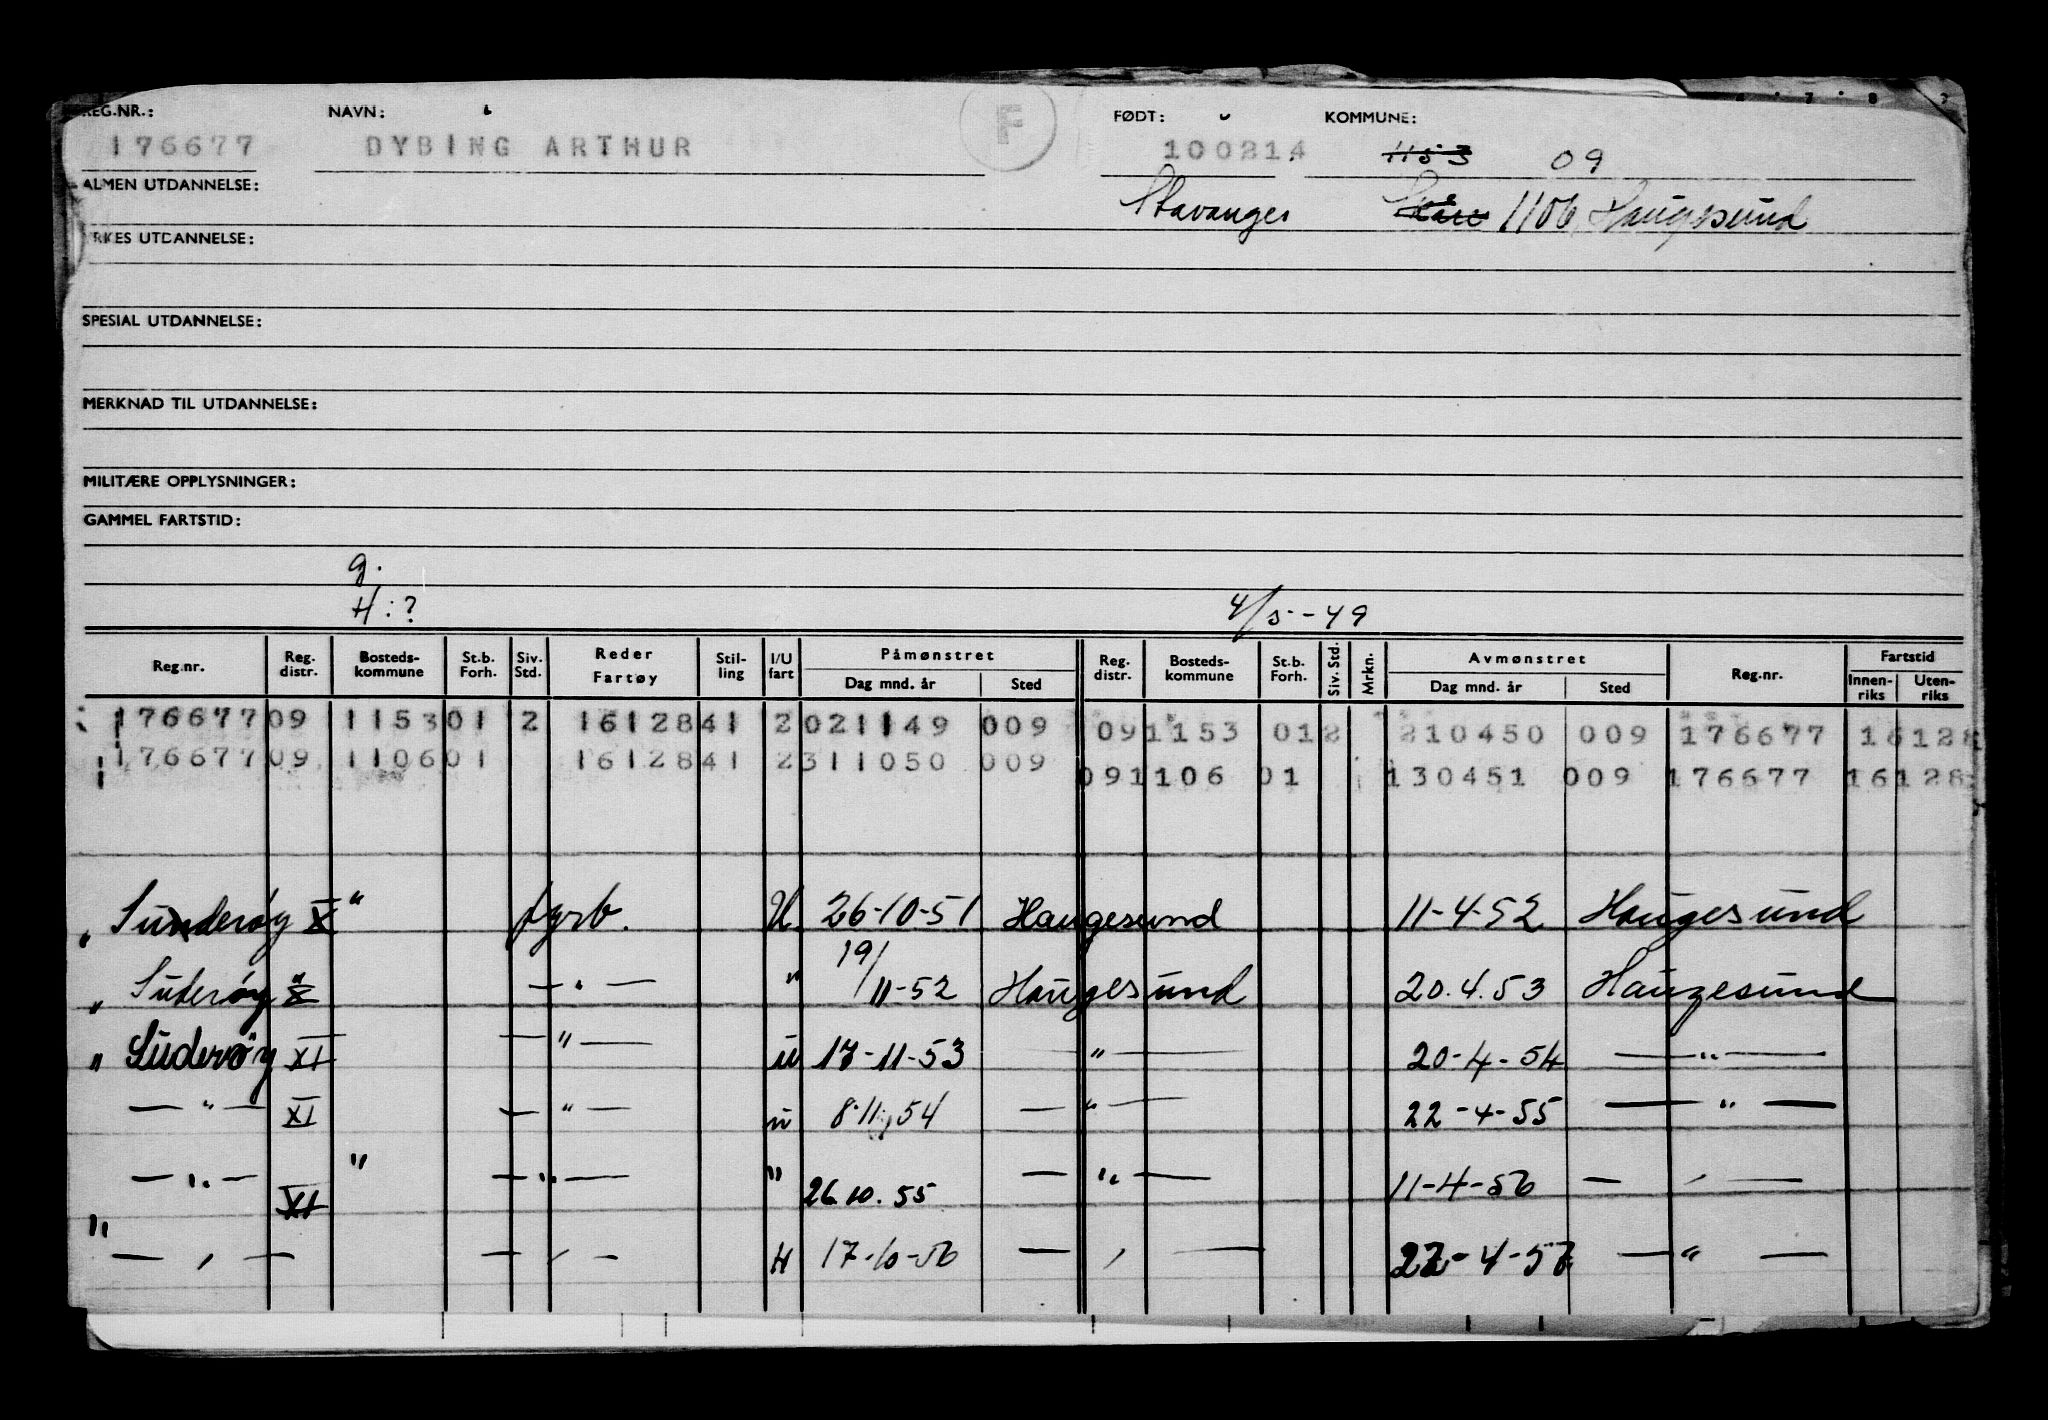 REG.NR.: NAVN: F FØDT: KOMMUNE:
176677 DYBING ARTHUR 100214 1153 09
ALMEN UTDANNELSE: Stavanger Skåre 1106 Haugesund
YRKES UTDANNELSE:
SPESIAL UTDANNELSE:
MERKNAD TIL UTDANNELSE:
MILITÆRE OPPLYSNINGER:
GAMMEL FARTSTID:
g.
H:? 4/5-49
Reg.nr. Reg. distr. Bosteds-kommune St.b. Forh. Siv. Std. Reder Fartøy Stil-ling I/U fart Påmønstret Dag mnd. år Sted Reg. distr. Bosteds-kommune St.b. Forh. Siv. Std. Mrkn. Avmønstret Dag mnd. år Sted Reg.nr. Fartstid Innen-riks Uten-riks
176677 09 1153 01 2 161284 1 2 021149 009 09 1153 01 2 210450 009 176677 16128
176677 09 1106 01 161284 1 2 311050 009 09 1106 01 130451 009 176677 16128
" Sunderøy X " fyrb. U 26-10-51 Haugesund 11-4-52 Haugesund
" Suderøy X — " — " 19/11-52 Haugesund 20.4.53 Haugesund
" Suderøy XI — " — u 17-11-53 — " — 20-4-54 — " —
— " — XI — " — u 8.11.54 — " — 22-4-55 — " —
— " — XI " — " — " 26.10.55 — " — 11-4-56 — " —
" — " — — " — U 17-10-56 — " — 27-4-57 — " —